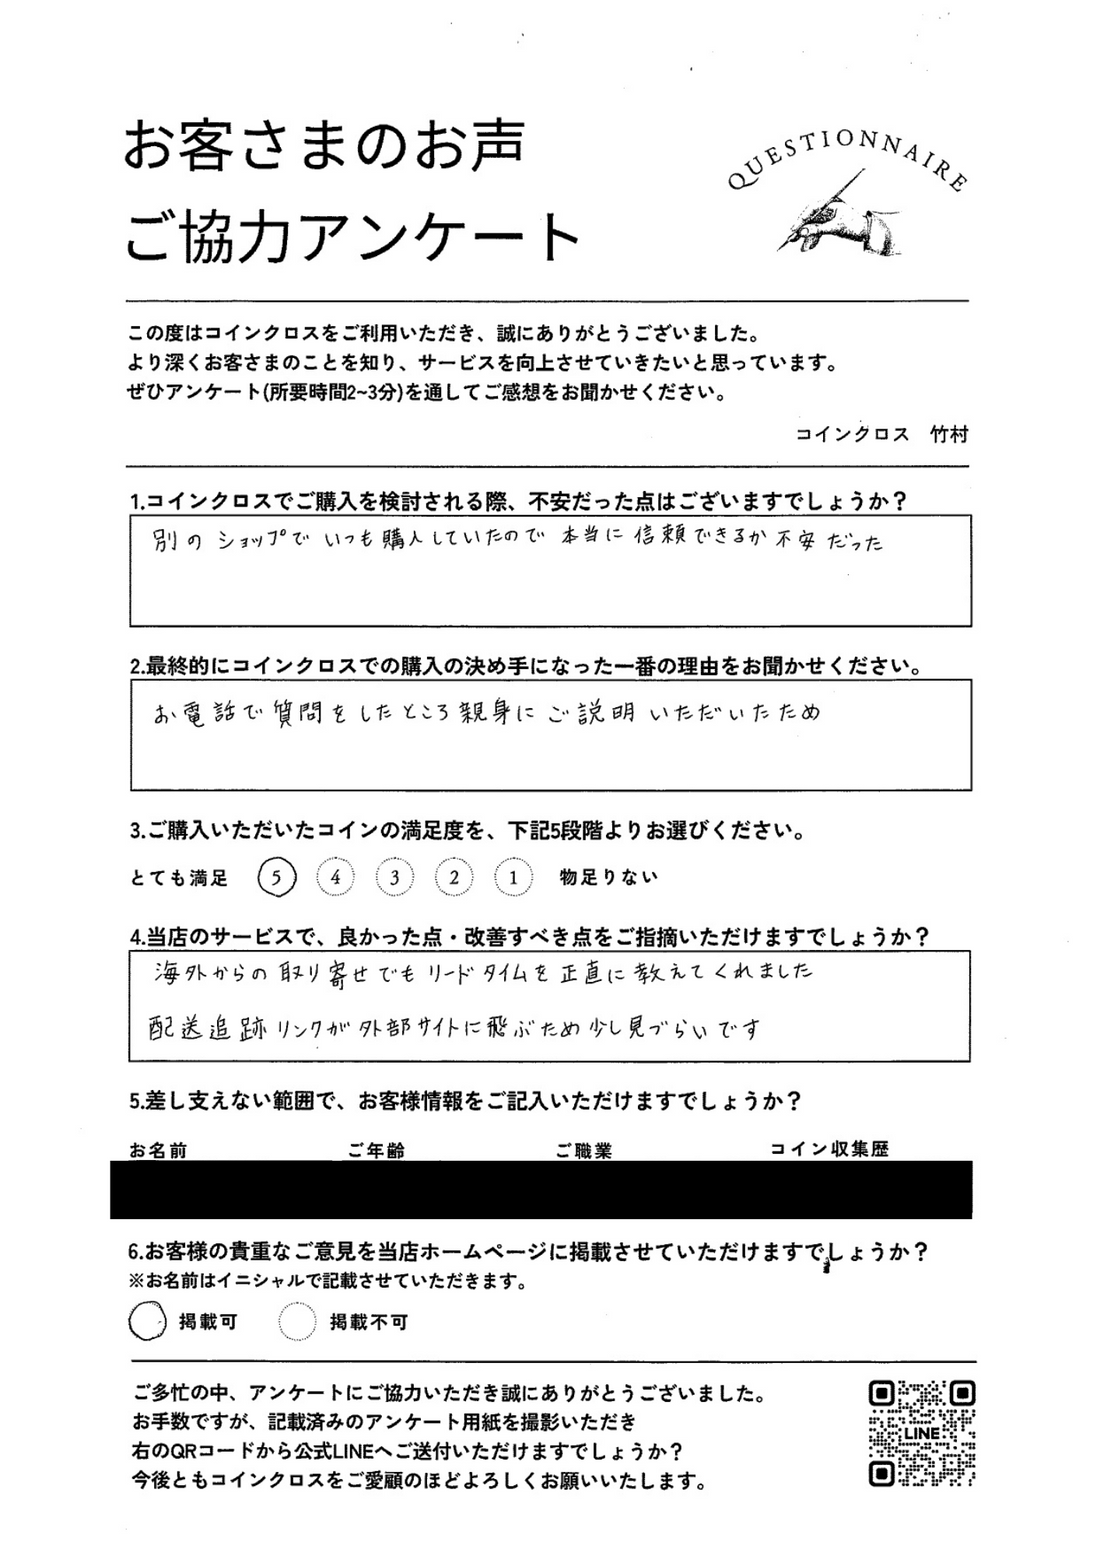 お客さまのお声
ご協力アンケート
QUESTIONNAIRE
この度はコインクロスをご利用いただき、誠にありがとうございました。
より深くお客さまのことを知り、サービスを向上させていきたいと思っています。
ぜひアンケート(所要時間2~3分)を通してご感想をお聞かせください。
コインクロス　竹村
1.コインクロスでご購入を検討される際、不安だった点はございますでしょうか？
別の ショップで いつも購入していたので 本当に 信頼できるか 不安 だった
2.最終的にコインクロスでの購入の決め手になった一番の理由をお聞かせください。
お電話で 質問をしたところ 親身に ご説明 いただいたため
3.ご購入いただいたコインの満足度を、下記5段階よりお選びください。
とても満足 5 4 3 2 1 物足りない
4.当店のサービスで、良かった点・改善すべき点をご指摘いただけますでしょうか？
海外からの 取り寄せでも リードタイムを 正直に 教えてくれました
配送追跡 リンクが 外部サイトに 飛ぶため 少し見づらいです
5.差し支えない範囲で、お客様情報をご記入いただけますでしょうか？
お名前 ご年齢 ご職業 コイン収集歴
6.お客様の貴重なご意見を当店ホームページに掲載させていただけますでしょうか？
※お名前はイニシャルで記載させていただきます。
掲載可 掲載不可
ご多忙の中、アンケートにご協力いただき誠にありがとうございました。
お手数ですが、記載済みのアンケート用紙を撮影いただき
右のQRコードから公式LINEへご送付いただけますでしょうか？
今後ともコインクロスをご愛顧のほどよろしくお願いいたします。
LINE